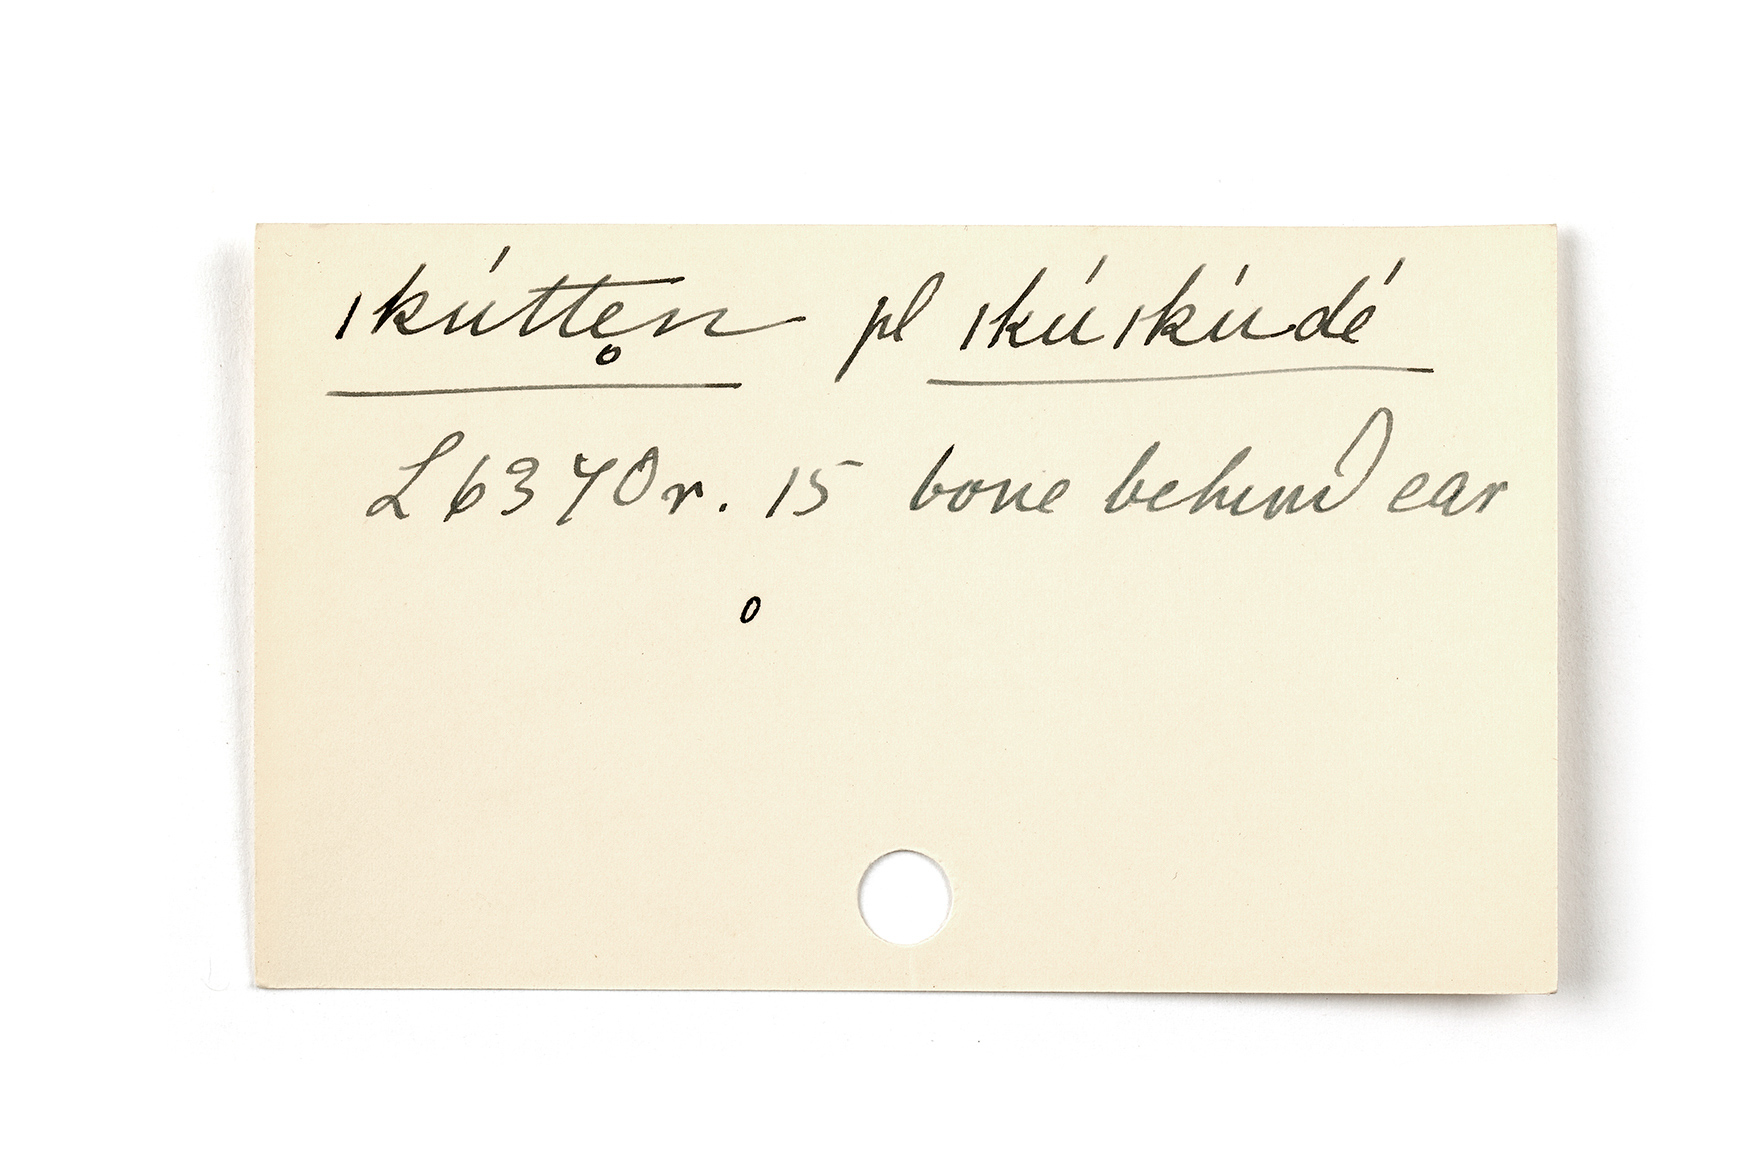 ǀkúttẹn pl ǀkúǀkúdé
L 6370 r. 15 bone behind ear
o